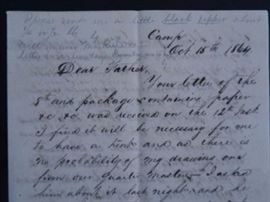 Please send me a little black pepper about
Camp
Oct 15th 1864
Dear Father,
Your letter of the
5th and package containing paper
&c &c was received on the 12th Inst.
I find it will be necessary for me
to have a and as there is
no probability of my drawing one
from our Quarter Master I asked
him about it last night and he